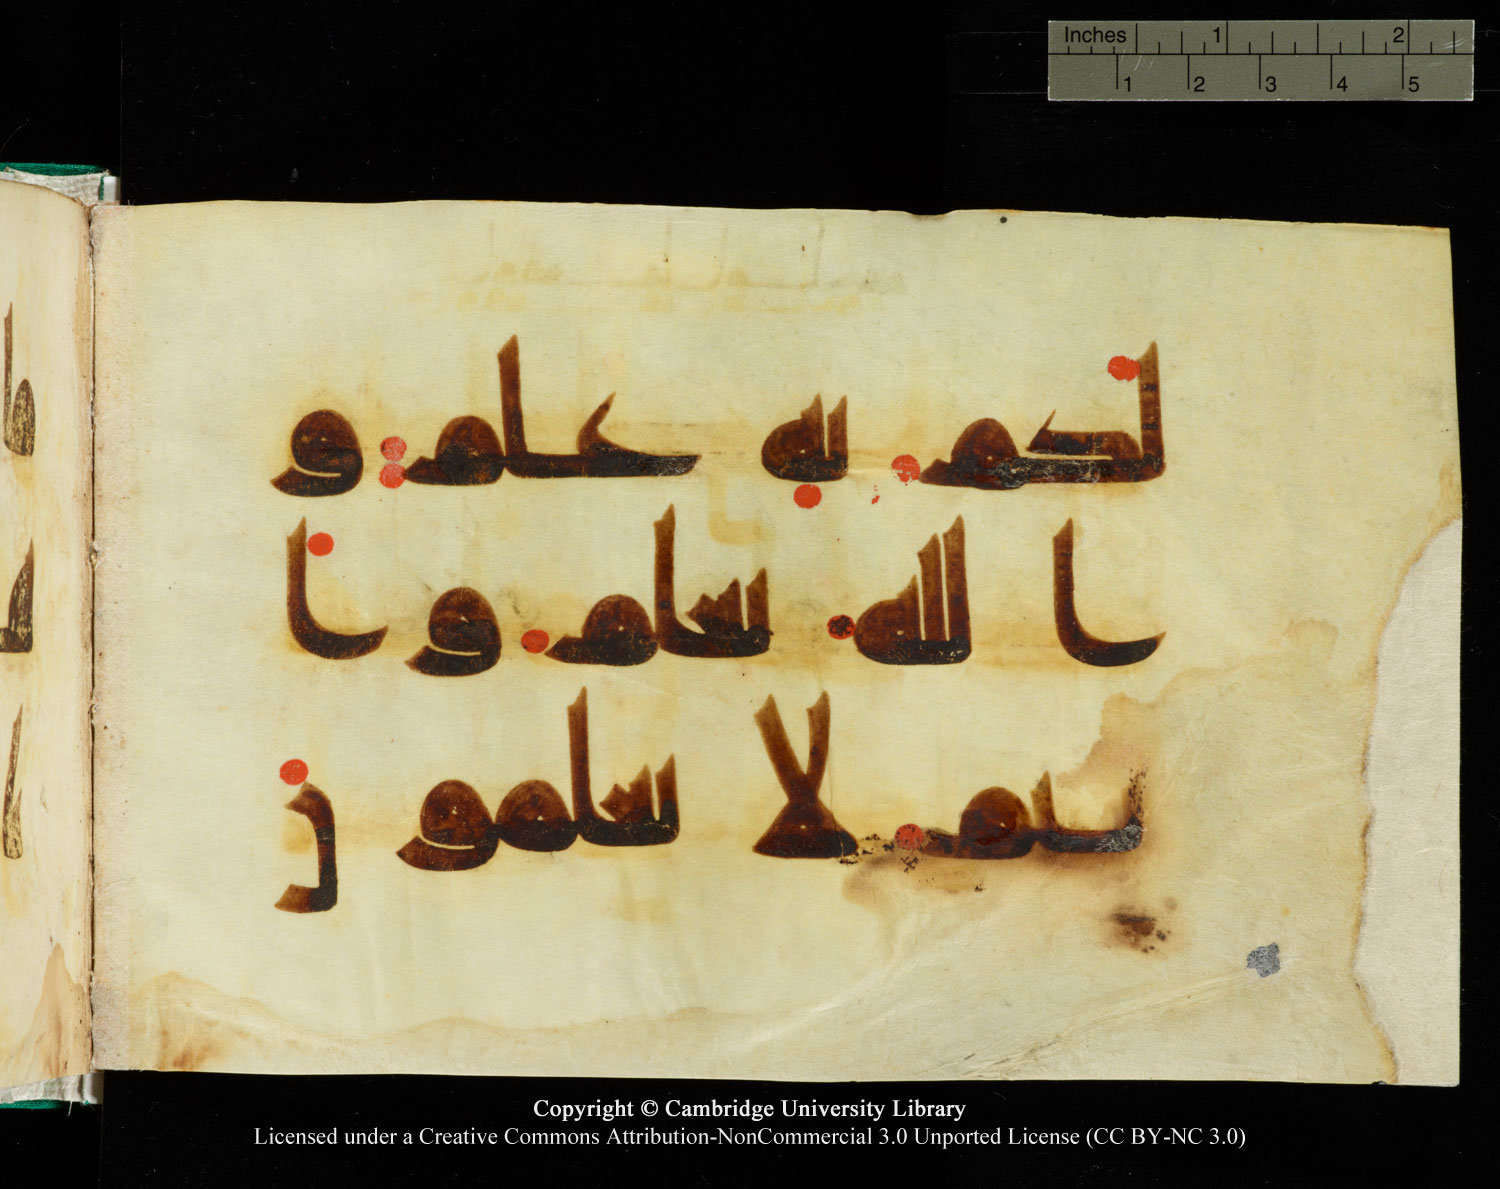 Inches 1 2
1 2 3 4 5
لكم به علم و
ا لله يعلم و ا
نتم لا تعلمو ن
Copyright © Cambridge University Library
Licensed under a Creative Commons Attribution-NonCommercial 3.0 Unported License (CC BY-NC 3.0)